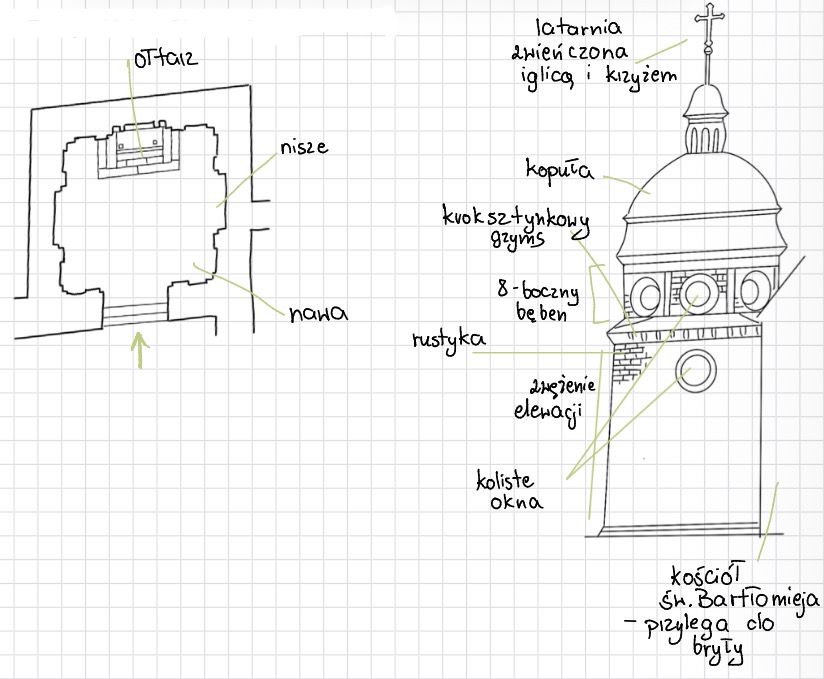 ołtarz
nisze
nawa
latarnia
zwieńczona
iglicą i krzyżem
kopuła
kroksztynkowy
gzyms
8-boczny
bęben
rustyka
zwężenie
elewacji
koliste
okna
kościół
św. Bartłomieja
- przylega do
bryły